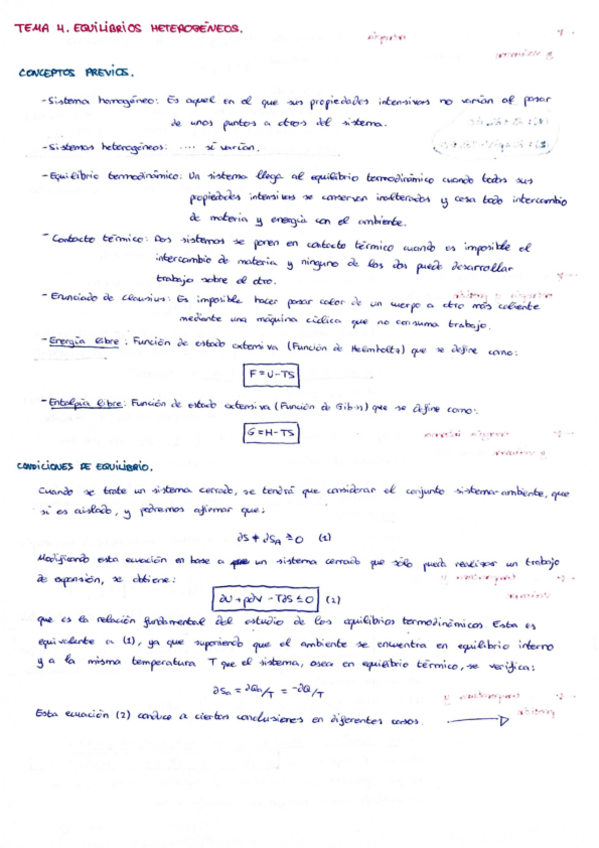 TEMA 4. EQUILIBRIOS HETEROGÉNEOS.
CONCEPTOS PREVIOS.
- Sistema homogéneo: Es aquel en el que sus propiedades intensivas no varían al pasar
de unos puntos a otros del sistema.
- Sistemas heterogéneos: .... sí varían.
- Equilibrio termodinámico: Un sistema llega al equilibrio termodinámico cuando todas sus
propiedades intensivas se conservan inalteradas y cesa todo intercambio
de materia y energía con el ambiente.
- Contacto térmico: Dos sistemas se ponen en contacto térmico cuando es imposible el
intercambio de materia y ninguno de los dos puede desarrollar
trabajo sobre el otro.
- Enunciado de Clausius: Es imposible hacer pasar calor de un cuerpo a otro más caliente
mediante una máquina cíclica que no consuma trabajo.
- Energía libre: Función de estado extensiva (Función de Helmholtz) que se define como:
F = U - TS
- Entalpía libre: Función de estado extensiva (Función de Gibbs) que se define como:
G = H - TS
CONDICIONES DE EQUILIBRIO.
Cuando se trate un sistema cerrado, se tendrá que considerar el conjunto sistema-ambiente, que
sí es aislado, y podremos afirmar que:
∂S + ∂S_A ≥ 0 (1)
Modificando esta ecuación en base a un sistema cerrado que sólo pueda realizar un trabajo
de expansión, se obtiene:
∂U + p∂V - T∂S ≤ 0 (2)
que es la relación fundamental del estudio de los equilibrios termodinámicos. Esta es
equivalente a (1), ya que suponiendo que el ambiente se encuentra en equilibrio interno
y a la misma temperatura T que el sistema, o sea en equilibrio térmico, se verifica:
∂Sa = ∂Qa/T = -∂Q/T
Esta ecuación (2) conduce a ciertas conclusiones en diferentes casos. →